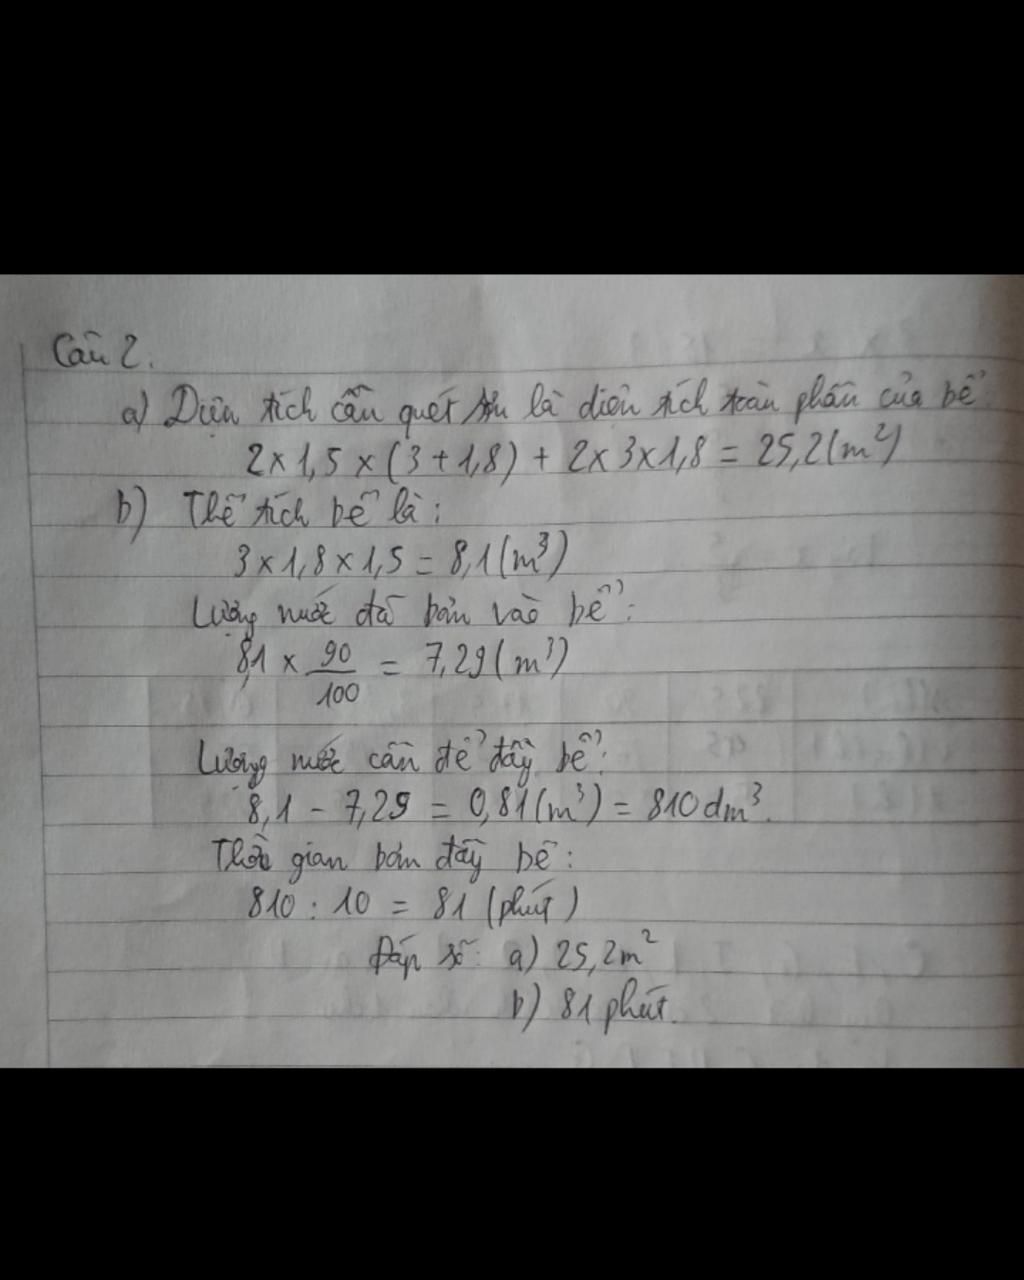 Câu 2.
a) Diện tích cần quét sơn là diện tích toàn phần của bể:
2 x 1,5 x (3 + 1,8) + 2 x 3 x 1,8 = 25,2 (m²)
b) Thể tích bể là:
3 x 1,8 x 1,5 = 8,1 (m³)
Lượng nước đã bơm vào bể:
8,1 x 90/100 = 7,29 (m³)
Lượng nước cần để đầy bể:
8,1 - 7,29 = 0,81 (m³) = 810 dm³.
Thời gian bơm đầy bể:
810 : 10 = 81 (phút)
Đáp số: a) 25,2m²
b) 81 phút.